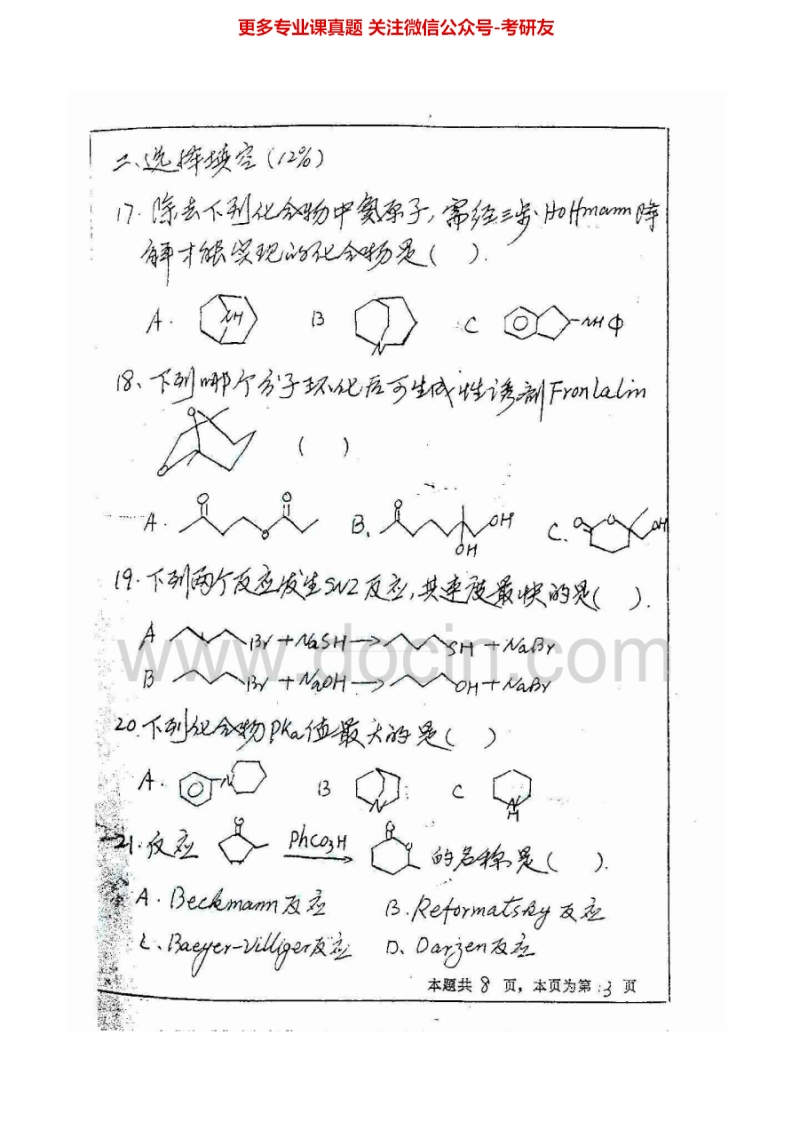 更多专业课真题 关注微信公众号-考研友
二、选择填空(12%)
17. 除去下列化合物中氮原子,需经三步Hoffmann降
解才能实现的化合物是( ).
A. NH B N C NHΦ
18、下列哪个分子环化后可生成性诱剂Fronlalin
O O ( )
A. O O O B. O OH OH C. O O OH
19. 下列两个反应发生SN2反应,其速度最快的是( ).
A Br + NaSH → SH + NaBr
B Br + NaOH → OH + NaBr
www.docin.com
20. 下列化合物PKa值最大的是( )
A. N B N C N H
21. 反应 O PhCO3H O O 的名称是( ).
A. Beckmann反应 B. Reformatsky 反应
C、Baeyer-Villiger反应 D、Darzen反应
本题共 8 页,本页为第 3 页